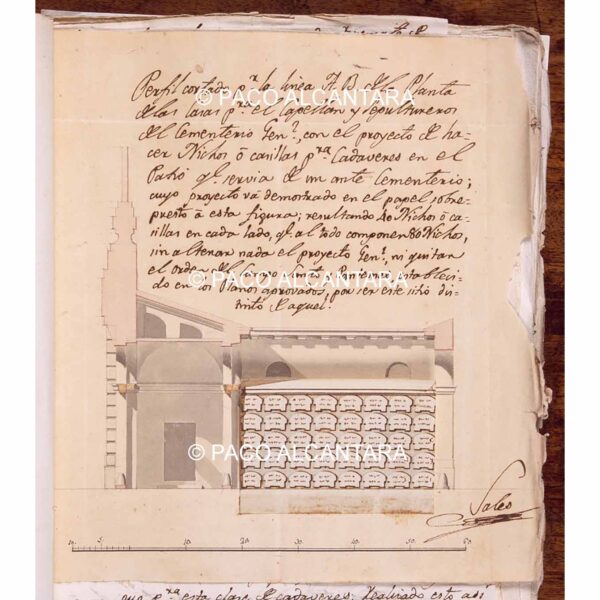 Perfil cortado pr. la linea A.B. de la Planta
de las casas pra. el Capellan y sepultureros
del Cementerio Genl., con el proyecto de ha-
cer Nichos ó casillas pra. Cadaveres en el
Patio ql. servia de un ante Cementerio;
cuyo proyecto vá demostrado en el papel sobre-
puesto á esta figura; resultando 40 Nichos ó ca-
sillas en cada lado, ql. al todo componen 80 Nichos,
sin alterar nada el proyecto Genl., ni quitar
el orden
estableci-
do en los Planos aprovados, por ser este sitio dis-
tinto de aquel.
© PACO ALCANTARA
© PACO ALCANTARA
© PACO ALCANTARA
10 5 10 20 30 40 50 60
pra. esta clase de cadaveres; Realizado esto asi